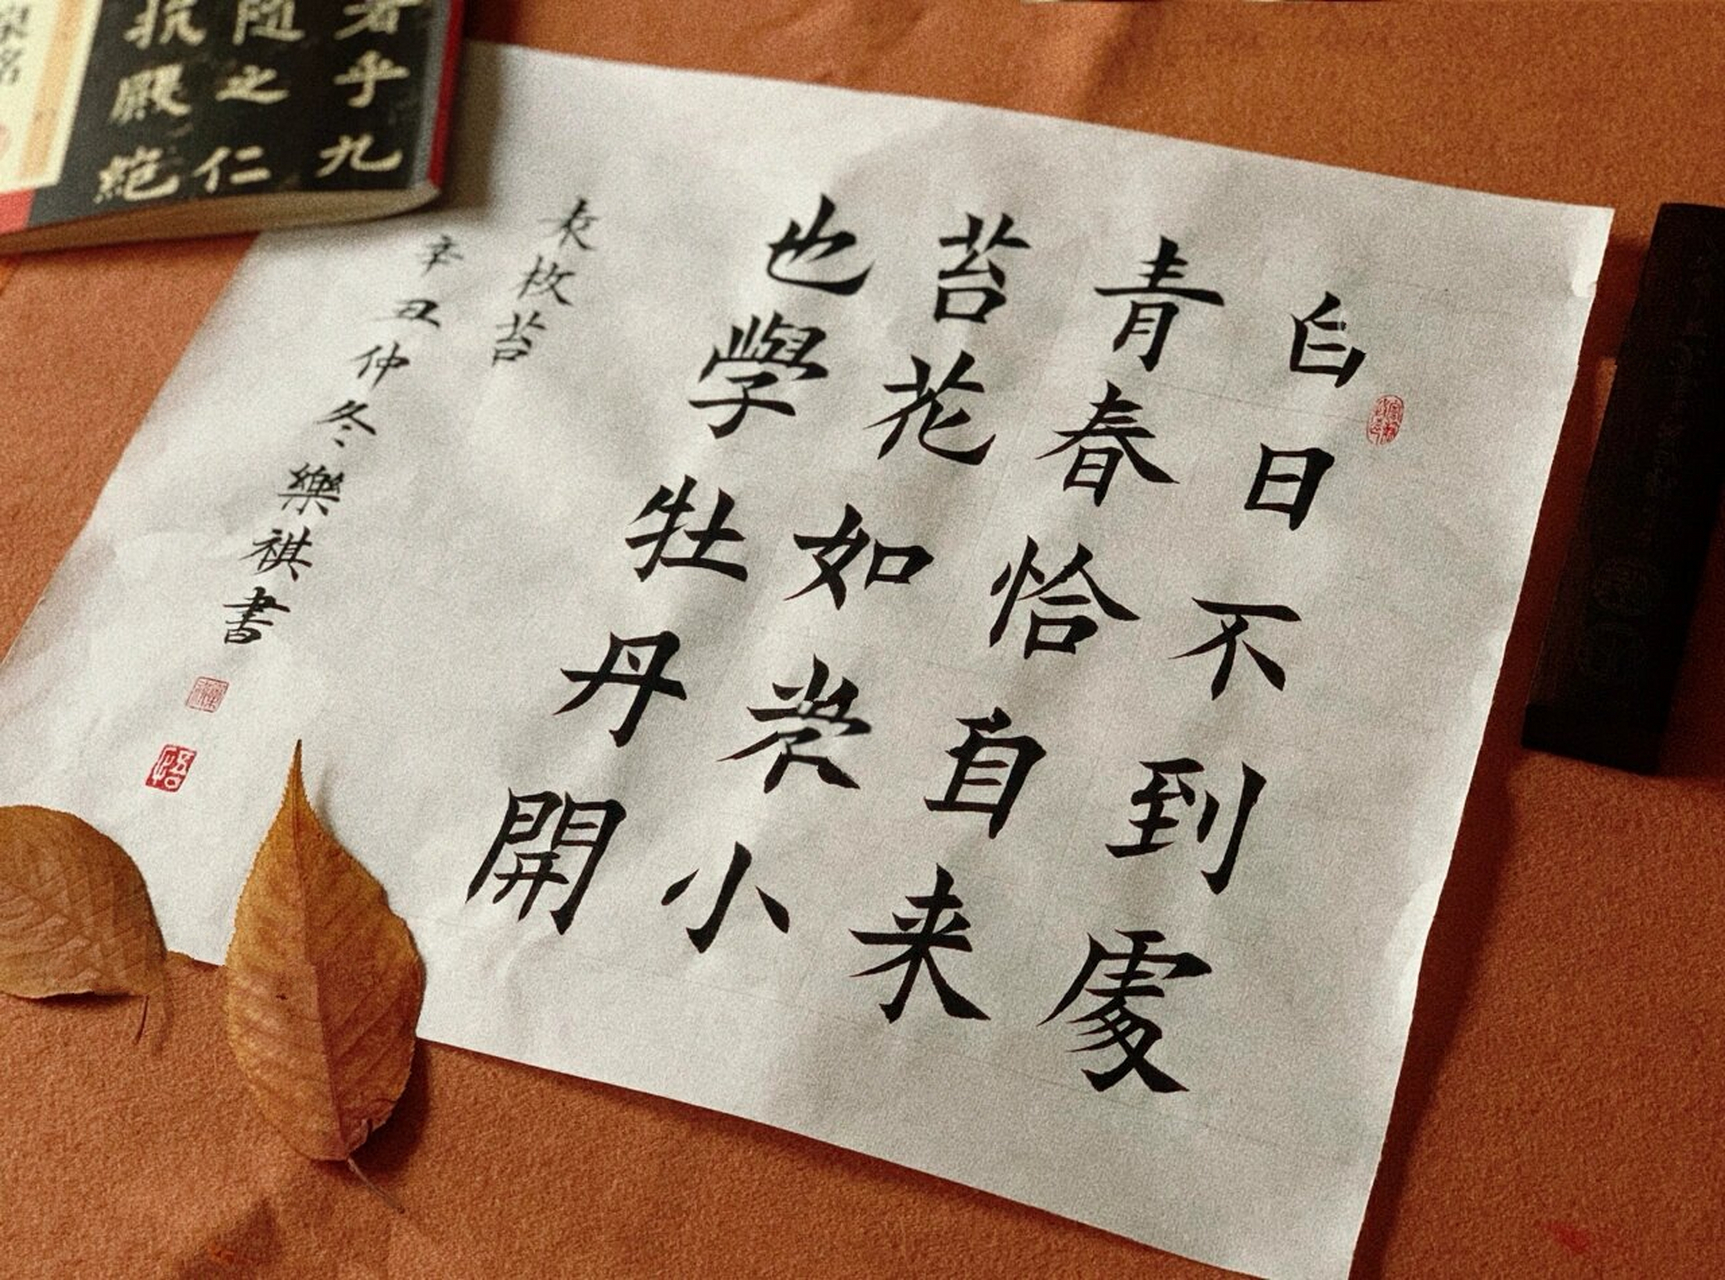 白日不到處
青春恰自来
苔花如小
也學牡丹開
袁枚苔
辛丑仲冬樂祺書
悟
乎九
随之仁
抗殿